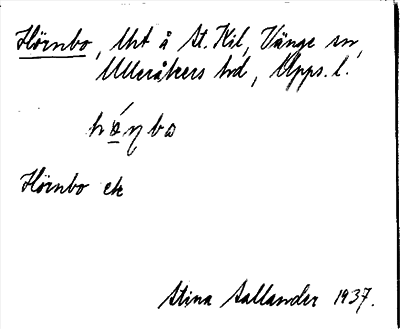 Hörnbo, lht å St. Kil, Vänge sn,
Ulleråkers hd, Upps. l.
hö́ƞbo
Hörnbo ek
Stina Sallander 1937.